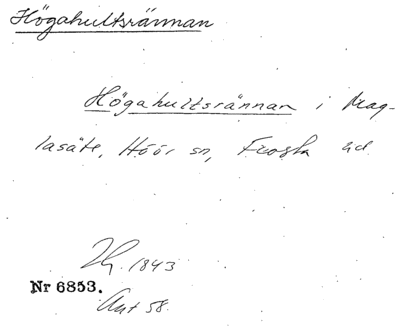 Högahultsrännan
Högahultsrännan i Mag-
lasäte, Höör sn, Frosta hd
1843
Nr 6853.
Ant 58.